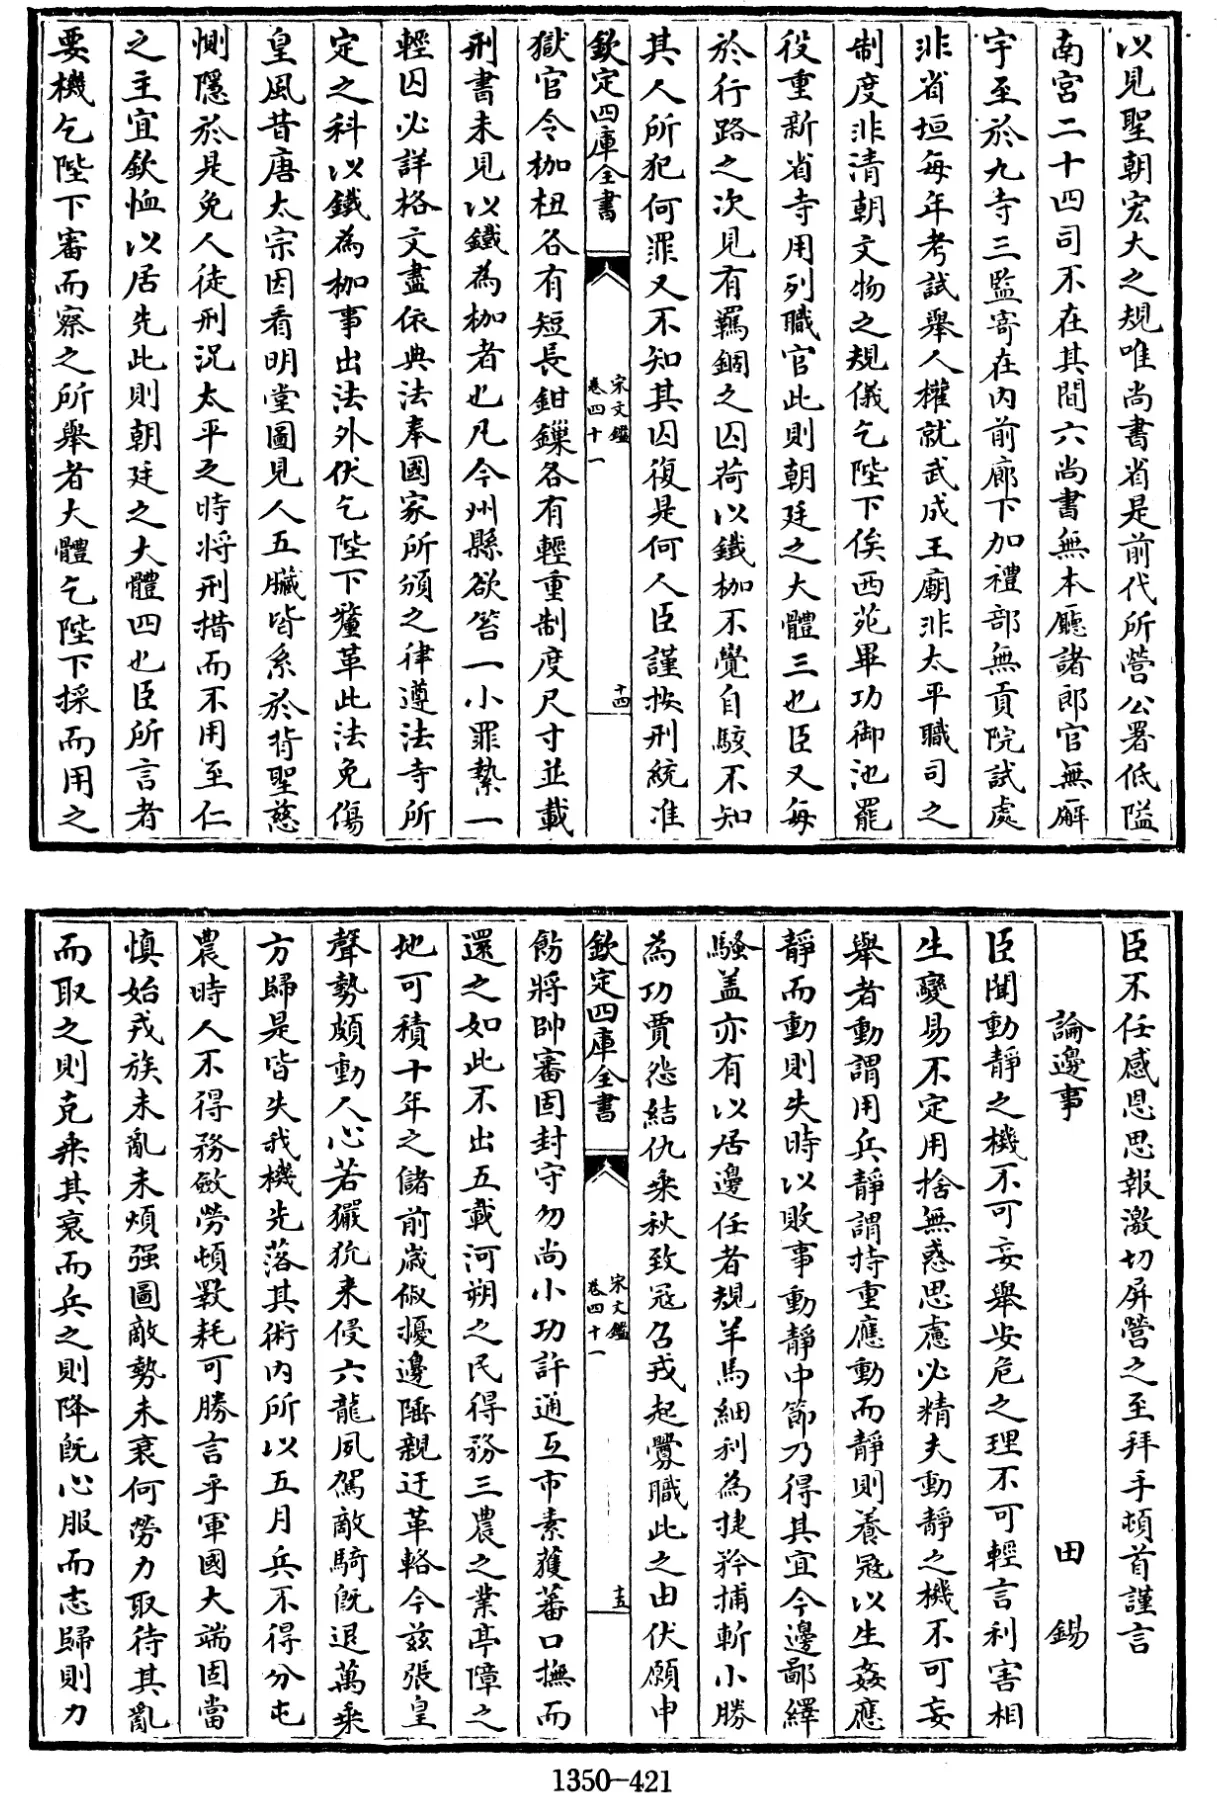 以見聖朝宏大之規唯尚書省是前代所營公署低隘
南宮二十四司不在其間六尚書無本廳諸郎官無廨
宇至於九寺三監寄在内前廊下加禮部無貢院試處
非省垣每年考試舉人權就武成王廟非太平職司之
制度非清朝文物之規儀乞陛下俟西苑畢功御池罷
役重新省寺用列職官此則朝廷之大體三也臣又每
於行路之次見有羈錮之囚荷以鐵枷不覺自駭不知
其人所犯何罪又不知其囚復是何人臣謹按刑統准
欽定四庫全書
宋文鑑
卷四十一
十四
獄官令枷杻各有短長鉗鏁各有輕重制度尺寸並載
刑書未見以鐵為枷者也凡今州縣欲笞一小罪縶一
輕囚必詳格文盡依典法奉國家所頒之律遵法寺所
定之科以鐵為枷事出法外伏乞陛下釐革此法免傷
皇風昔唐太宗因看明堂圖見人五臟皆系於背聖慈
惻隱於是免人徒刑況太平之時將刑措而不用至仁
之主宜欽恤以居先此則朝廷之大體四也臣所言者
要機乞陛下審而察之所舉者大體乞陛下採而用之
臣不任感恩思報激切屏營之至拜手頓首謹言
論邊事 田錫
臣聞動靜之機不可妄舉安危之理不可輕言利害相
生變易不定用捨無惑思慮必精夫動靜之機不可妄
舉者動謂用兵靜謂持重應動而靜則養寇以生姦應
靜而動則失時以敗事動靜中節乃得其宜今邊鄙繹
騷盖亦有以居邊任者規羊馬細利為捷矜捕斬小勝
為功賈怨結仇乘秋致寇召戎起釁職此之由伏願申
欽定四庫全書
宋文鑑
卷四十一
十五
飭將帥審固封守勿尚小功許通互市素獲蕃口撫而
還之如此不出五載河朔之民得務三農之業亭障之
地可積十年之儲前歲俶擾邊陲親迂革輅今兹張皇
聲勢頗動人心若玁狁来侵六龍夙駕敵騎既退萬乘
方歸是皆失我機先落其術内所以五月兵不得分屯
農時人不得務斂勞頓斁耗可勝言乎軍國大端固當
慎始戎族未亂未煩强圖敵勢未衰何勞力取待其亂
而取之則克乘其衰而兵之則降既心服而志歸則力
1350-421